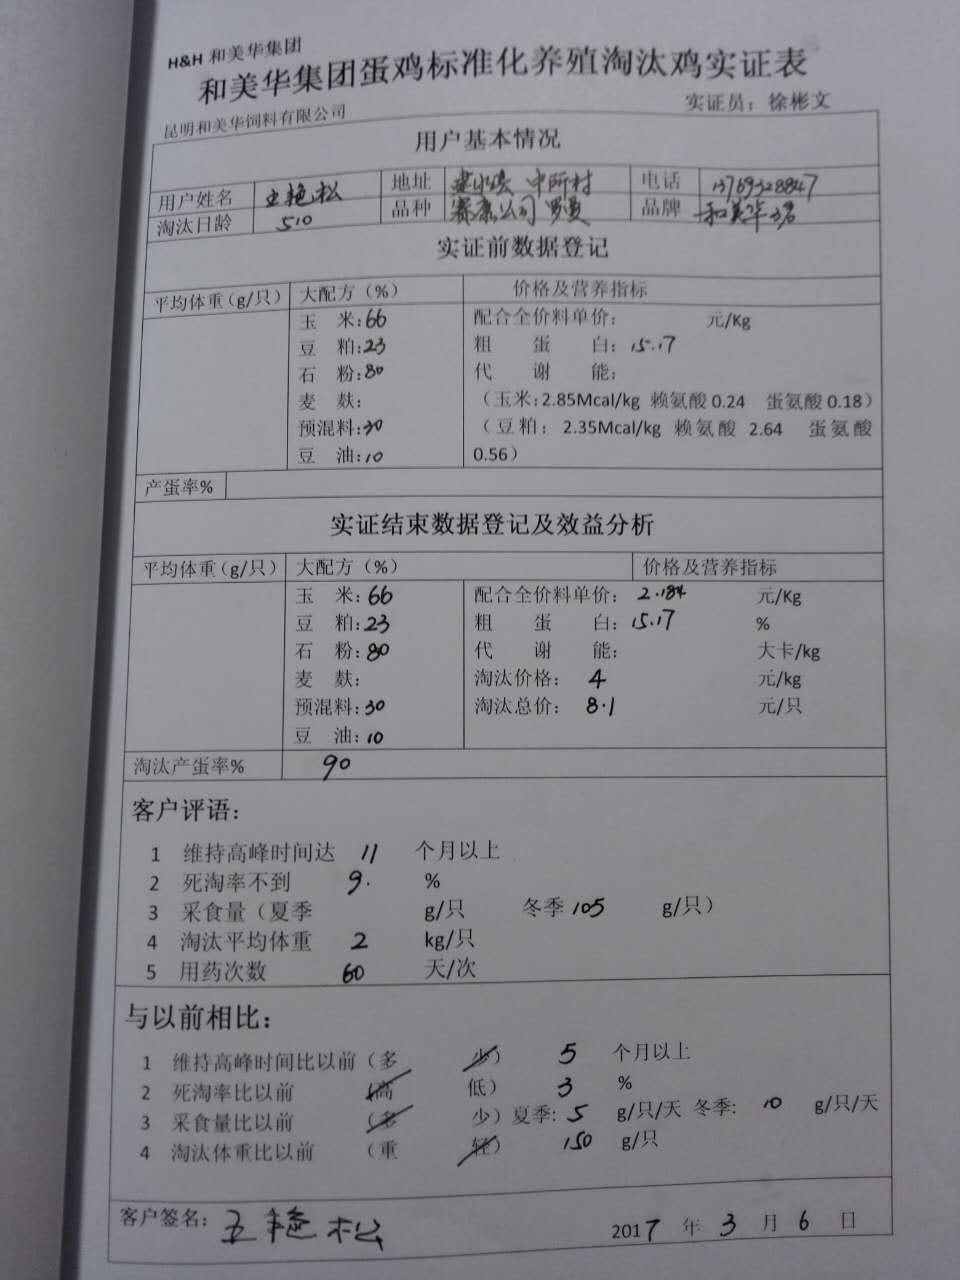 H&H 和美华集团
和美华集团蛋鸡标准化养殖淘汰鸡实证表
昆明和美华饲料有限公司 实证员：徐彬文
用户基本情况
用户姓名 艳松 地址 建水县 中所村 电话 13769328847
淘汰日龄 510 品种 赛康公司 罗曼 品牌 和美华
实证前数据登记
平均体重(g/只) 大配方（%） 价格及营养指标
玉 米：66 配合全价料单价： 元/Kg
豆 粕：23 粗 蛋 白：15.17
石 粉：80 代 谢 能：
麦 麸： （玉米：2.85Mcal/kg 赖氨酸 0.24 蛋氨酸 0.18）
预混料：30 （豆粕：2.35Mcal/kg 赖氨酸 2.64 蛋氨酸
豆 油：10 0.56）
产蛋率%
实证结束数据登记及效益分析
平均体重(g/只) 大配方（%） 价格及营养指标
玉 米：66 配合全价料单价： 2.184 元/Kg
豆 粕：23 粗 蛋 白：15.17 %
石 粉：80 代 谢 能： 大卡/kg
麦 麸： 淘汰价格： 4 元/kg
预混料：30 淘汰总价： 8.1 元/只
豆 油：10
淘汰产蛋率% 90
客户评语：
1 维持高峰时间达 11 个月以上
2 死淘率不到 9. %
3 采食量（夏季 g/只 冬季 105 g/只）
4 淘汰平均体重 2 kg/只
5 用药次数 60 天/次
与以前相比：
1 维持高峰时间比以前（多 少） 5 个月以上
2 死淘率比以前 （高 低） 3 %
3 采食量比以前 （多 少）夏季：5 g/只/天 冬季: 10 g/只/天
4 淘汰体重比以前 （重 轻） 150 g/只
客户签名： 艳松 2017 年 3 月 6 日